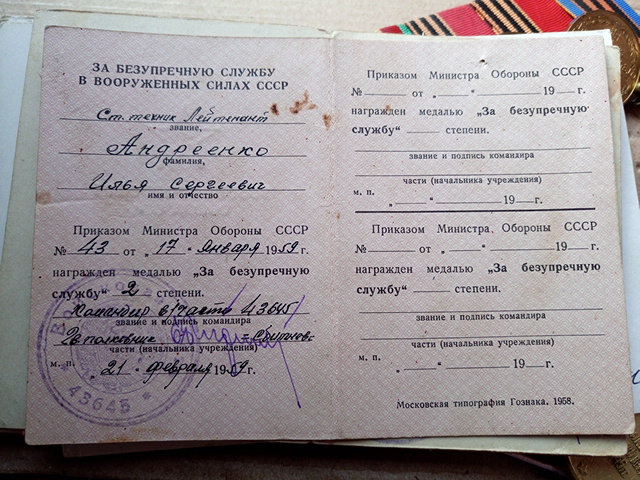 ЗА БЕЗУПРЕЧНУЮ СЛУЖБУ
В ВООРУЖЕННЫХ СИЛАХ СССР
Ст. техник Лейтенант
звание,
Андреенко
фамилия,
Илья Сергеевич
имя и отчество
Приказом Министра Обороны СССР
№ 43 от „17“ января 1959 г.
награжден медалью „За безупречную
службу“ 2 степени.
Командир в/части 43645
звание и подпись командира
полковник
части (начальника учреждения)
м. п. „21“ февраля 1959 г.
43645
Приказом Министра Обороны СССР
№ от „ “ 19 г.
награжден медалью „За безупречную
службу“ степени.
звание и подпись командира
части (начальника учреждения)
м. п. „ “ 19 г.
Приказом Министра Обороны СССР
№ от „ “ 19 г.
награжден медалью „За безупречную
службу“ степени.
звание и подпись командира
части (начальника учреждения)
м. п. „ “ 19 г.
Московская типография Гознака. 1958.